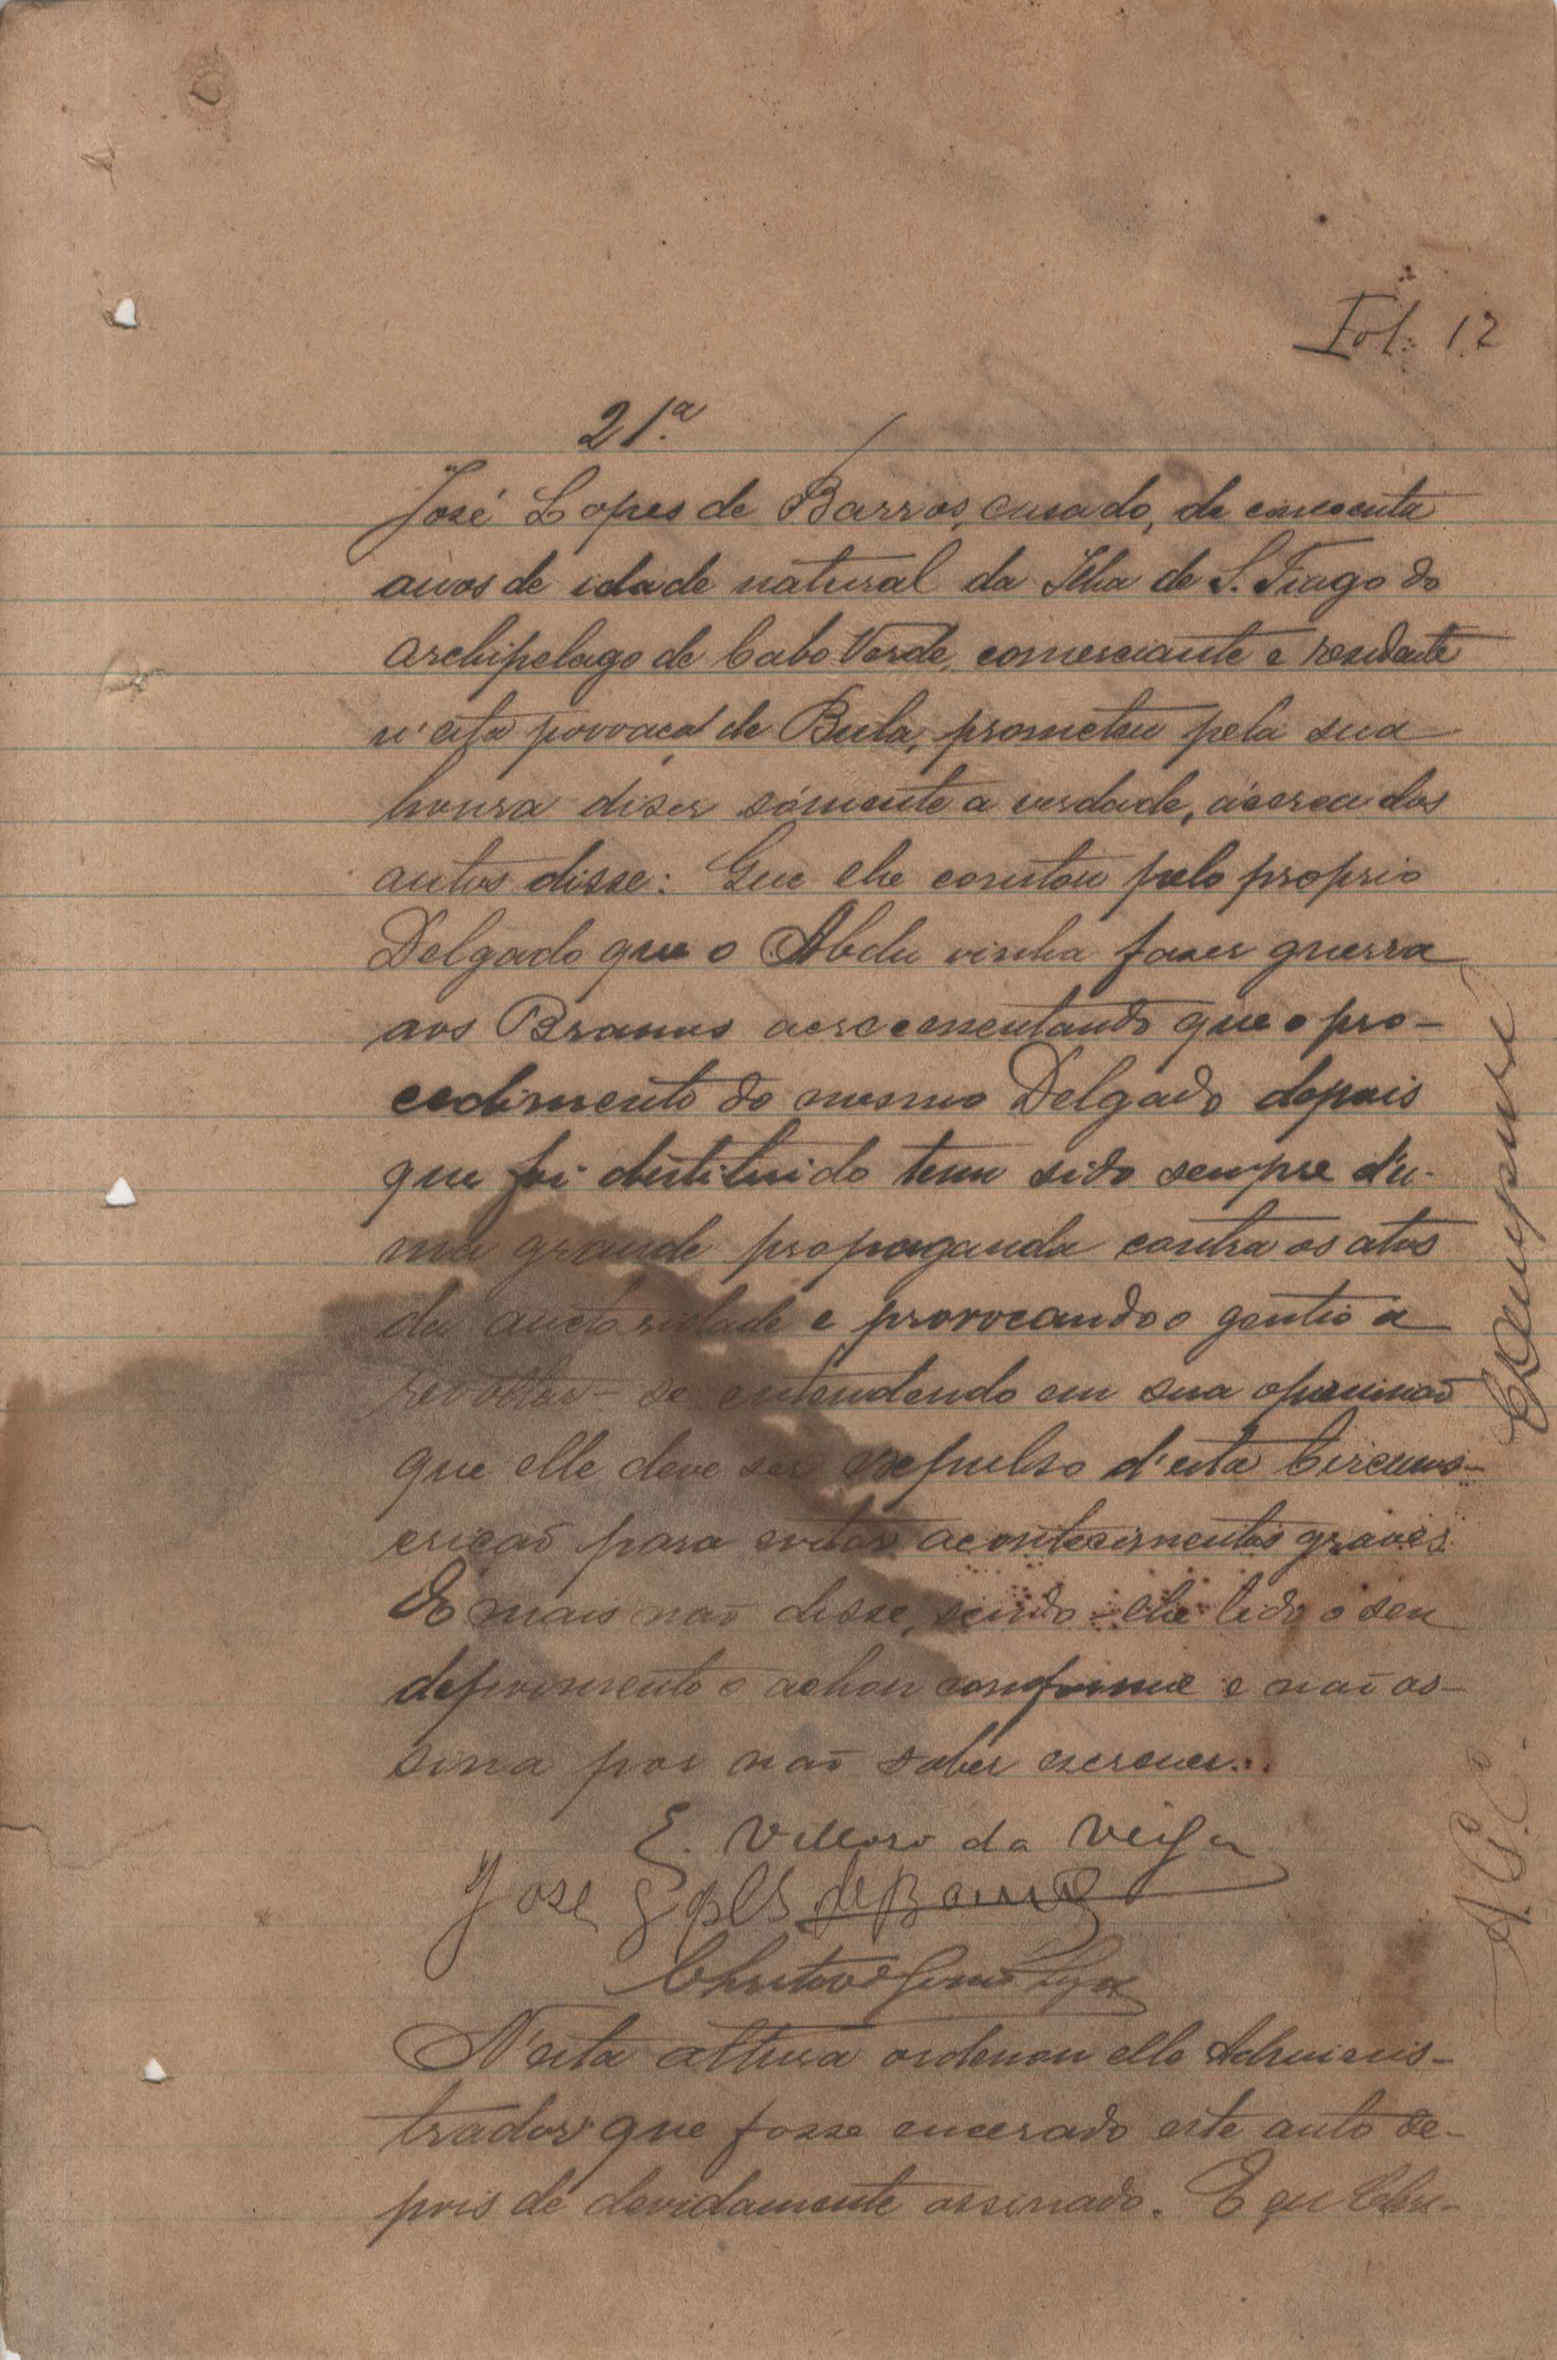 Fol. 12
21.ª
José Lopes de Barros, casado, de cincoenta
anos de idade natural da Ilha de S. Tiago do
archipelago de Cabo Verde, comerciante e residente
n'esta povoaçaõ de Bula, prometeu pela sua
honra diser sómente a verdade, ácerca dos
autos disse: Que lhe constou pelo proprio
Delgado que o Abdu vinha faser guerra
aos Brames acrecentando que o pro-
cedimento do mesmo Delgado depois
que foi destituido tem sido sempre d'u-
ma grande propaganda contra os atos
da auctoridade e provocando o gentio a
revoltar-se entendendo em sua opinnião
que elle deve ser expulso d'esta Circums-
criçaõ para evitar acontecimentos graves.
E mais naõ disse, sendo-lhe lido o seu
depoimento o achou conforme e naõ as-
sina por naõ saber escrever...
E. Velloso da Veiga
Jose Lopes de Barros
N'esta altura ordenou elle Adminis-
trador que fosse encerado este auto de-
pois de devidamente assinado. E eu Chri-